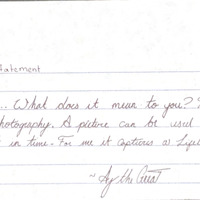 tatement
... What does it mean to you?
hotography. A picture can be used
in time. For me it captures a Life
~